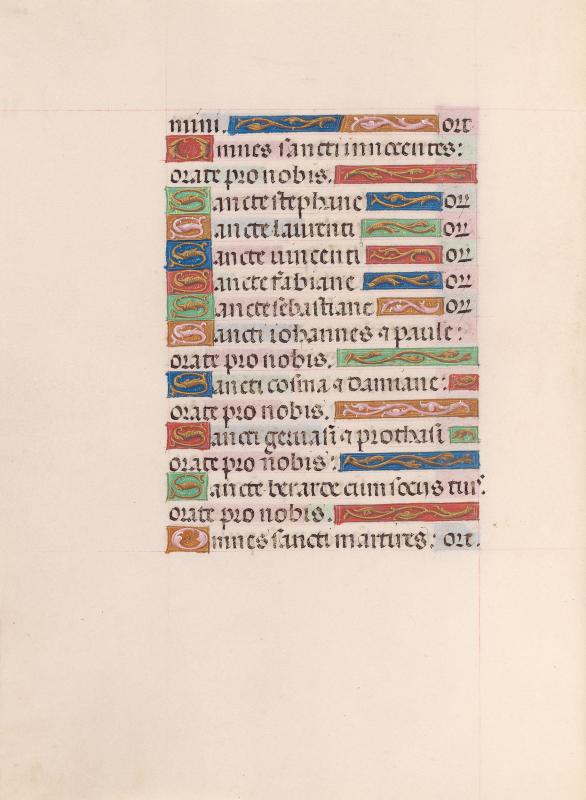 mini. orate
Omnes sancti innocentes:
orate pro nobis.
Sancte stephane or
Sancte laurenti or
Sancte vincenti or
Sancte fabiane or
Sancte sebastiane or
Sancti iohannes & paule:
orate pro nobis.
Sancti cosma & damiane:
orate pro nobis.
Sancti gervasi & prothasi
orate pro nobis:
Sancte berarde cum sociis tuis.
orate pro nobis.
Omnes sancti martires: orate.